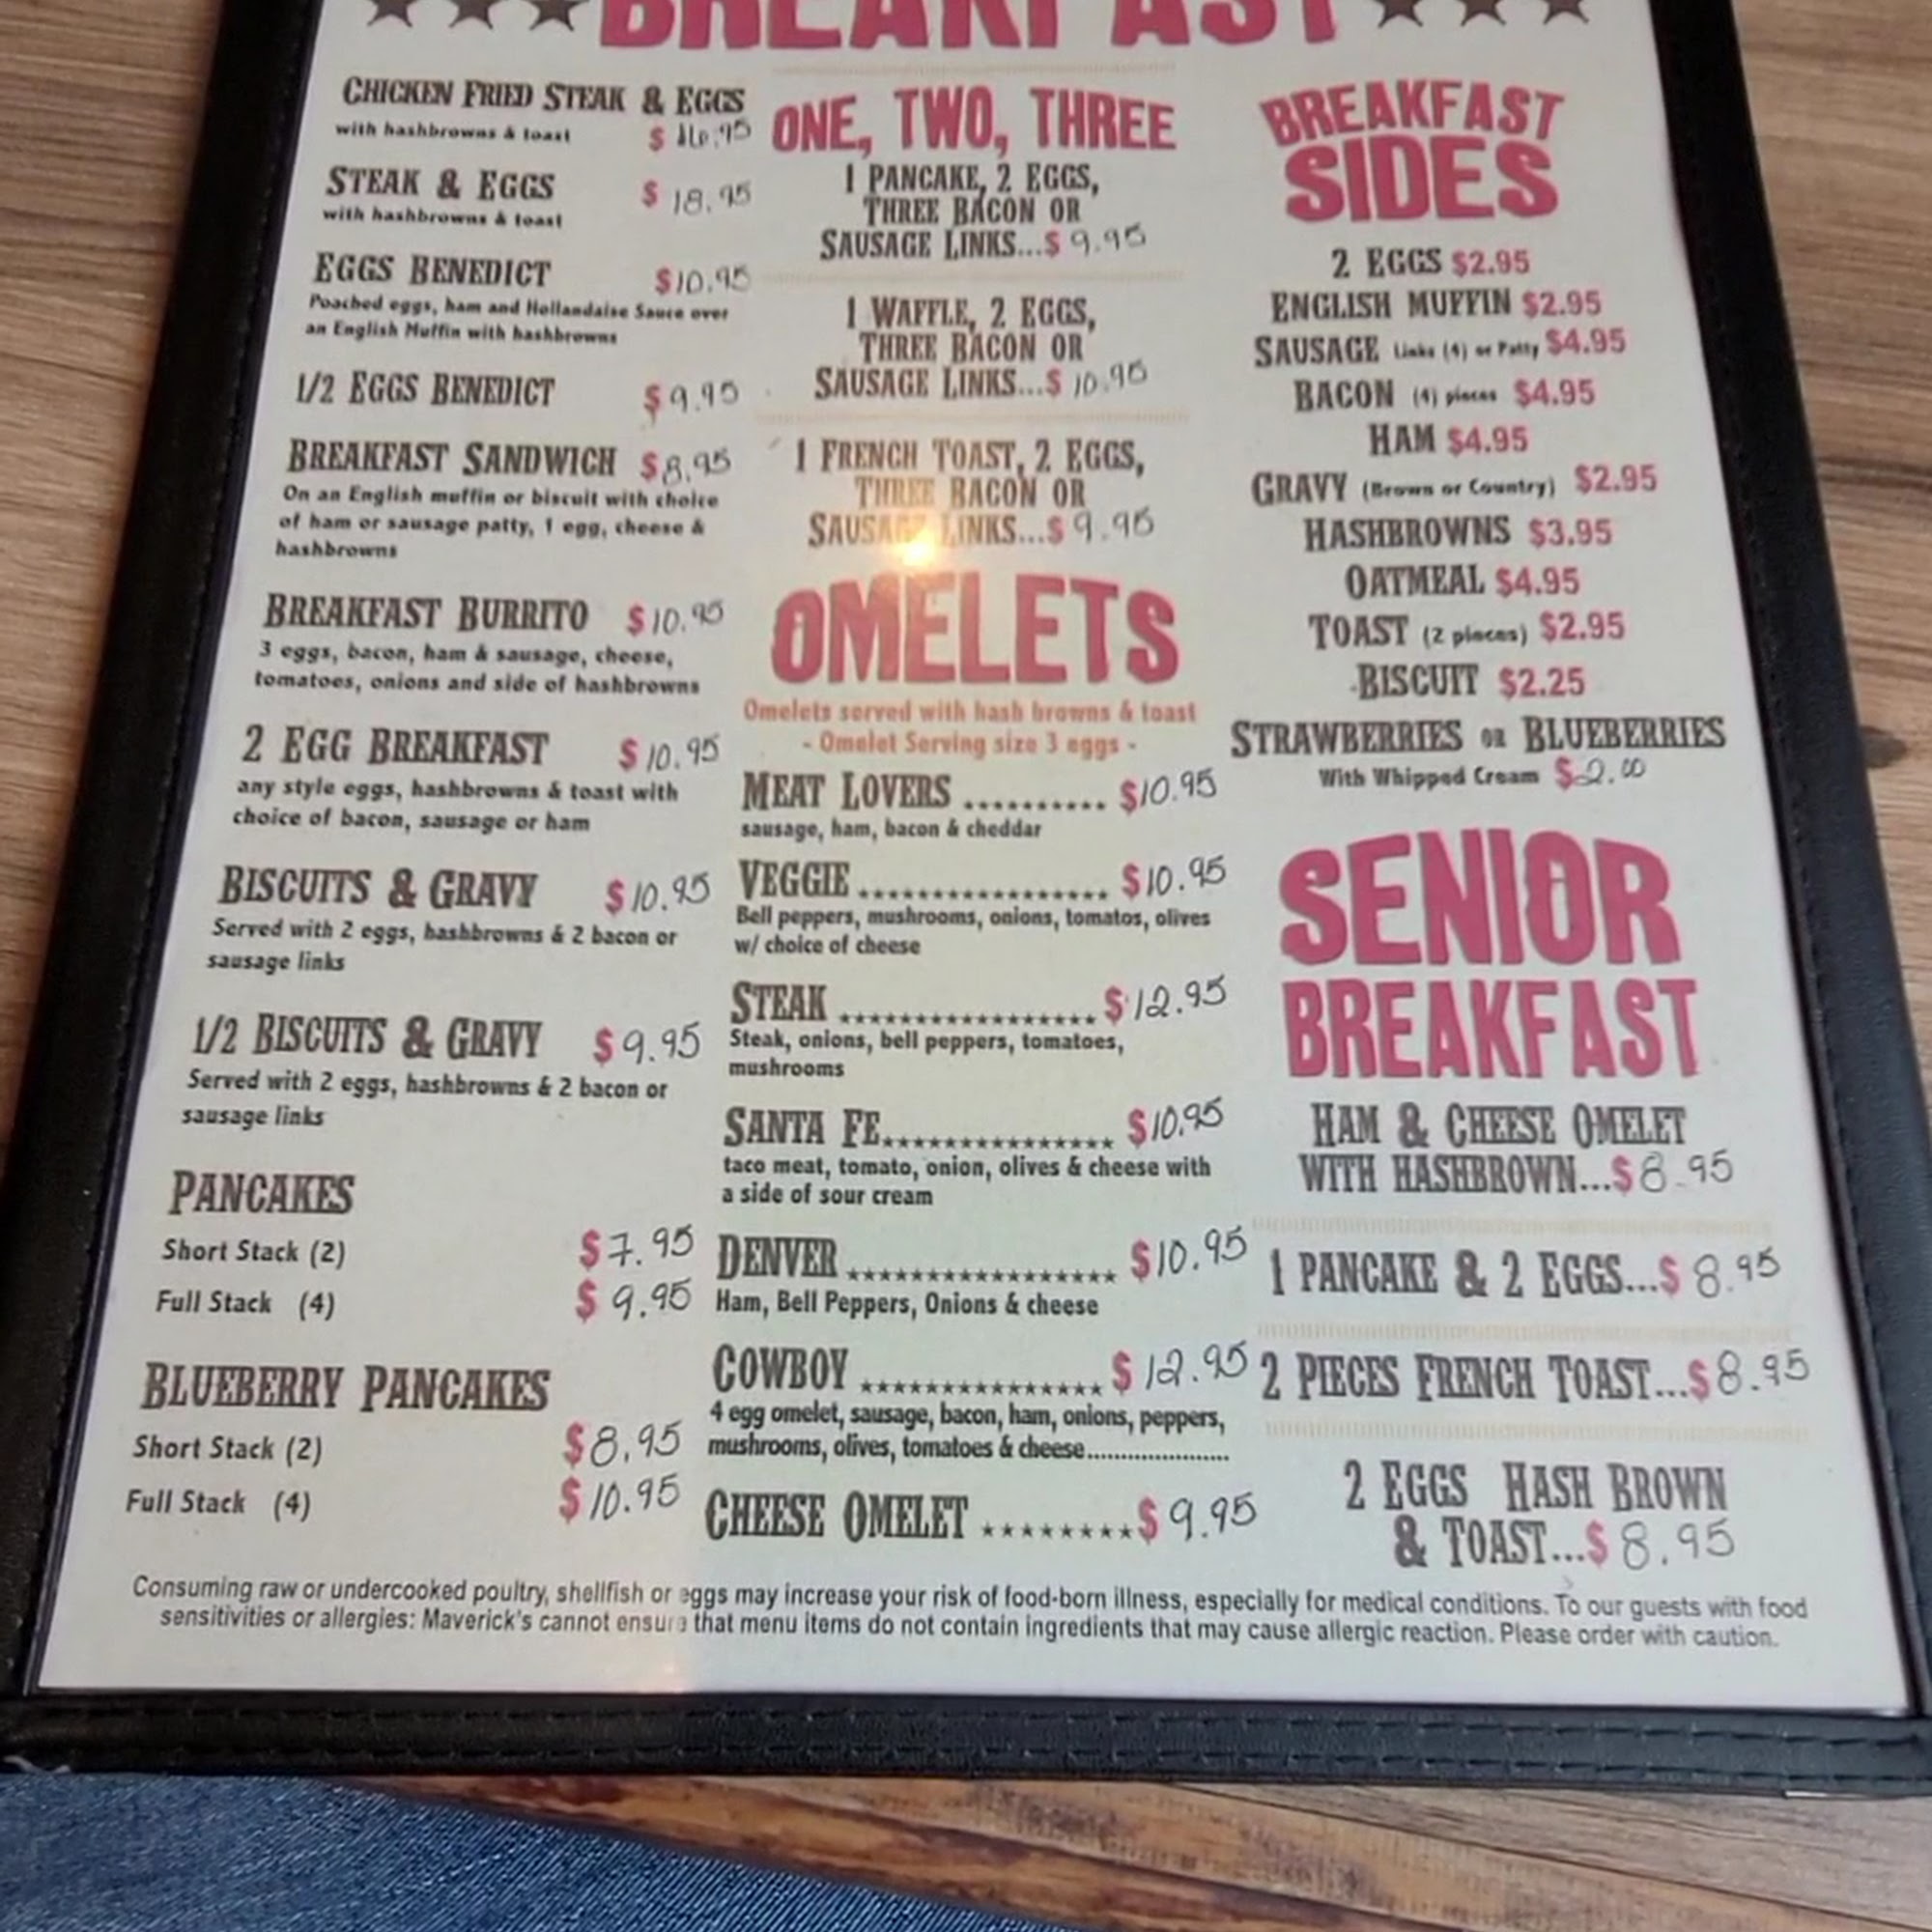 BREAKFAST
CHICKEN FRIED STEAK & EGGS
with hashbrowns & toast $ 16.95
STEAK & EGGS $ 18.95
with hashbrowns & toast
EGGS BENEDICT $10.95
Poached eggs, ham and Hollandaise Sauce over
an English Muffin with hashbrowns
1/2 EGGS BENEDICT $9.95
BREAKFAST SANDWICH $8.95
On an English muffin or biscuit with choice
of ham or sausage patty, 1 egg, cheese &
hashbrowns
BREAKFAST BURRITO $10.95
3 eggs, bacon, ham & sausage, cheese,
tomatoes, onions and side of hashbrowns
2 EGG BREAKFAST $10.95
any style eggs, hashbrowns & toast with
choice of bacon, sausage or ham
BISCUITS & GRAVY $10.95
Served with 2 eggs, hashbrowns & 2 bacon or
sausage links
1/2 BISCUITS & GRAVY $9.95
Served with 2 eggs, hashbrowns & 2 bacon or
sausage links
PANCAKES
Short Stack (2) $7.95
Full Stack (4) $9.95
BLUEBERRY PANCAKES
Short Stack (2) $8.95
Full Stack (4) $10.95
ONE, TWO, THREE
1 PANCAKE, 2 EGGS,
THREE BACON OR
SAUSAGE LINKS...$ 9.95
1 WAFFLE, 2 EGGS,
THREE BACON OR
SAUSAGE LINKS...$ 10.95
1 FRENCH TOAST, 2 EGGS,
THREE BACON OR
SAUSAGE LINKS...$ 9.95
OMELETS
Omelets served with hash browns & toast
- Omelet Serving size 3 eggs -
MEAT LOVERS .......... $10.95
sausage, ham, bacon & cheddar
VEGGIE ................. $10.95
Bell peppers, mushrooms, onions, tomatos, olives
w/ choice of cheese
STEAK ................. $12.95
Steak, onions, bell peppers, tomatoes,
mushrooms
SANTA FE................ $10.95
taco meat, tomato, onion, olives & cheese with
a side of sour cream
DENVER ................. $10.95
Ham, Bell Peppers, Onions & cheese
COWBOY ................ $12.95
4 egg omelet, sausage, bacon, ham, onions, peppers,
mushrooms, olives, tomatoes & cheese......................
CHEESE OMELET ........ $9.95
BREAKFAST
SIDES
2 EGGS $2.95
ENGLISH MUFFIN $2.95
SAUSAGE Links (4) or Patty $4.95
BACON (4) pieces $4.95
HAM $4.95
GRAVY (Brown or Country) $2.95
HASHBROWNS $3.95
OATMEAL $4.95
TOAST (2 pieces) $2.95
BISCUIT $2.25
STRAWBERRIES OR BLUEBERRIES
With Whipped Cream $2.00
SENIOR
BREAKFAST
HAM & CHEESE OMELET
WITH HASHBROWN...$8.95
1 PANCAKE & 2 EGGS...$ 8.95
2 PIECES FRENCH TOAST...$8.95
2 EGGS HASH BROWN
& TOAST...$ 8.95
Consuming raw or undercooked poultry, shellfish or eggs may increase your risk of food-born illness, especially for medical conditions. To our guests with food
sensitivities or allergies: Maverick's cannot ensure that menu items do not contain ingredients that may cause allergic reaction. Please order with caution.